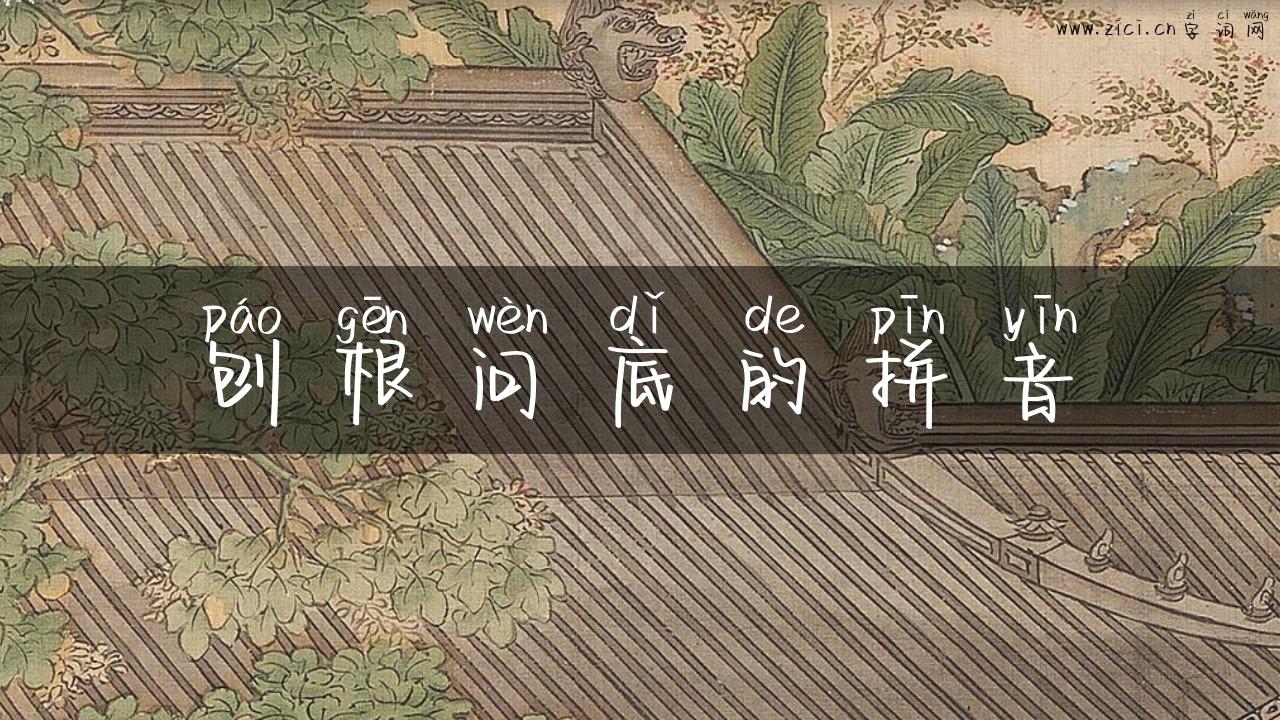 zì cí wǎng
www.zici.cn 字词网
páo gēn wèn dǐ de pīn yīn
刨根问底的拼音